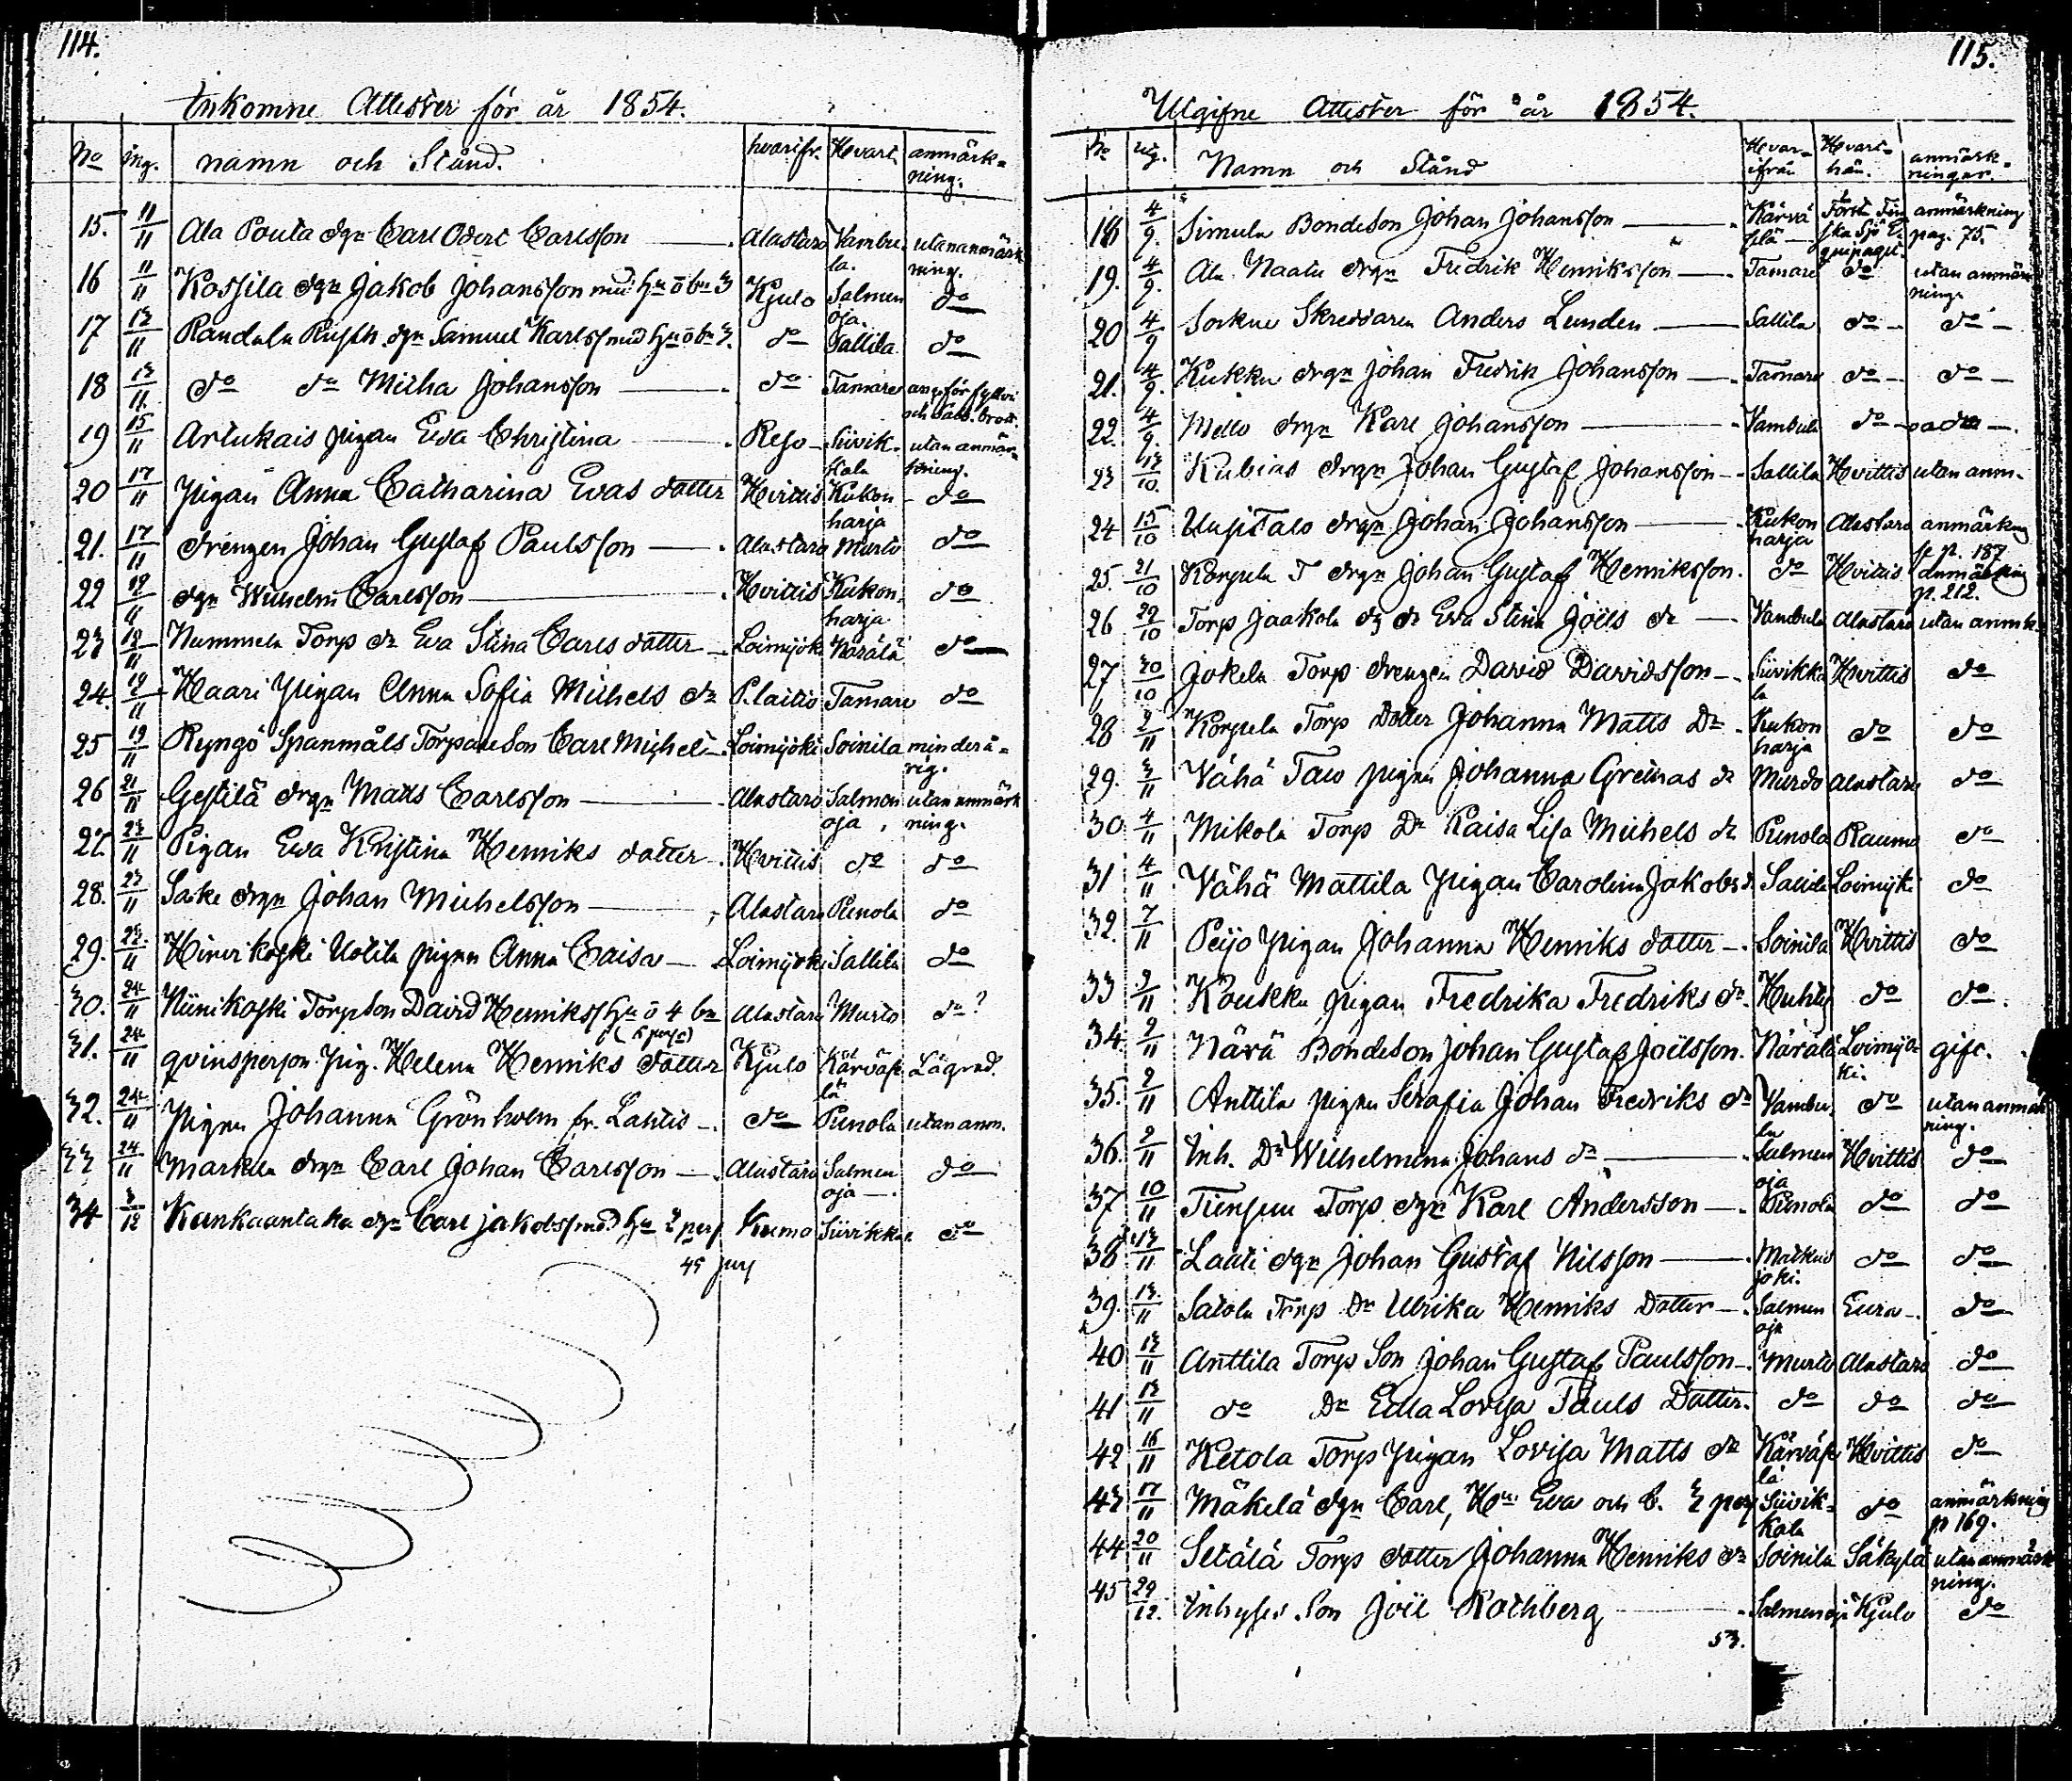 114.
Inkomne Attester för år 1854.
No ing. namn och Stånd. hvarifr. Hvart. anmärk=
ning.
15. 11/11 Ala Pouta dgn Carl Odert Carlsson Alastaro Vambu
la. utan anmärk
ning.
16 11/11 Kossila dgn Jakob Johansson med hu o bn 3 Kjulo Salmen
oja. do
17 13/11 Pandala Rusth. dgn Samuel Karlss med hu o bn 3. do Sallila do
18 13/11 do do Micha Johansson do Tamare ang. för fylleri
och Sabb. brott.
19 15/11 Artukais pigan Eva Christina Reso Siivik-
kala utan anmär-
kning.
20 17/11 Pigan Anna Catharina Evas dotter Hvittis Kukon
harja do
21. 17/11 drengen Johan Gustaf Paulsson Alastaro Murto do
22 19/11 dgn Wilhelm Carlsson Hvittis Kukon
harja do
23 19/11 Nummela Torp dr Eva Stina Carls dotter Loimijoki Närälä do
24. 19/11 Haari Pigan Anna Sofia Michels dr P.laitio Tamare do
25 19/11 Ryngö Spanmåls Torpare Son Carl Michels Loimijoki Soinila minderå-
rig.
26 21/11 Gestilä drgn Matts Carlsson Alastaro Salmen
oja utan anmärk
ning.
27. 23/11 Pigan Eva Kristina Henriks dotter Hvittis do do
28. 23/11 Sake drgn Johan Michelsson Alastaro Pienola do
29. 23/11 Hirvikoski Uotila pigan Anna Caisa Loimijoki Sallila do
30. 24/11 Niinikoski Torp Son David Henrikss hu o 4 bn Alastaro Murto do?
(6 pers)
31. 24/11 qvinsperson Pig. Helena Henriks dotter Kjulo Kärväs
lä Lägrad.
32. 24/11 Pigan Johanna Grönholm fr. Lahtis do Pienola utan anm.
33 24/11 Markula drgn Carl Johan Carlsson Alastaro Salmen
oja do
34 3/12 Kankaantaka dgn Carl Jakobss med hu 2 pers Kumo Siivikka do
45 pers
115.
Utgifne Attester för år 1854.
No utg. Namn och Stånd Hvar-
ifrån Hvart-
hän. anmärk-
ningar.
18 4/9. Simula Bondeson Johan Johansson Kärvä
slä Först. Fin
ska Sjö E-
quipaget. anmärkning
pag. 75.
19. 4/9. Ala Naatu drgn Fredrik Henriksson Tamare do utan anmärk
ning.
20 4/9 Sorkue Skreddaren Anders Lunden Sallila do do
21. 4/9. Kukku drgn Johan Fredrik Johansson Tamare do do
22. 4/9. Mello drgn Karl Johansson Vambula do do
23 13/10. Kubias drgn Johan Gustaf Johansson Sallila Hvittis utan anm.
24 15/10 Uusitalo drgn Johan Johansson Kukon
harja Alastaro anmärkng
se p. 187
25. 21/10 Korpela T drgn Johan Gustaf Henriksson. do Hvittis anmärkning
p. 212.
26 22/10 Torp Jaakola dr Eva Stina Joëls dr Vambula Alastaro utan anmk.
27 30/10 Jokela Torp drengen David Davidsson Siivikka
la Hvittis do
28 2/11 Korpela Torp Dotter Johanna Matts Dr Kukon
harja do do
29. 3/11 Vähä Talo pigan Johanna Gretas dr Murdo Alastaro do
30 4/11 Mikola Torp Dr Kaisa Lisa Michels dr Pienola Raumo do
31 4/11 Vähä Mattila Pigan Carolina Jakobs d. Sallila Loimijoki do
32. 7/11 Peijo Pigan Johanna Henriks dotter Soinila Hvittis do
33 9/11 Koukku pigan Fredrika Fredriks dr Huhti do do
34. 9/11 Närä Bondeson Johan Gustaf Joëlsson. Närälä Loimijo-
ki. gift.
35. 9/11 Anttila pigan Serafia Johan Fredriks dr Vambu
la do utan anmärk
ning.
36. 9/11 Inh. Dr Wilhelmina Johans dr Salmen
oja Hvittis do
37 10/11 Tiensuu Torp dgn Karl Andersson Pienola do do
38 13/11 Laati dgn Johan Gustaf Nilsson Matkus
joki. do do
39. 13/11 Satola Torp Dr Ulrika Henriks Dotter Salmen
oja Eura do
40 13/11 Anttila Torp Son Johan Gustaf Paulsson Murto Alastaro do
41 13/11 do Dr Edla Lovisa Pauls Dotter. do do do
42 16/11 Ketola Torp Pigan Lovisa Matts dr Kärväs
lä Hvittis do
43 17/11 Mäkelä dgn Carl, Hu Eva och b. 3 pers Siivik-
kala do anmärkning
p 169.
44 20/11 Setälä Torp dotter Johanna Henriks dr Soinila Säkylä utan anmärk
ning.
45 29/12. Inhyses Son Joël Rothberg Salmenoja Kjulo do
53.